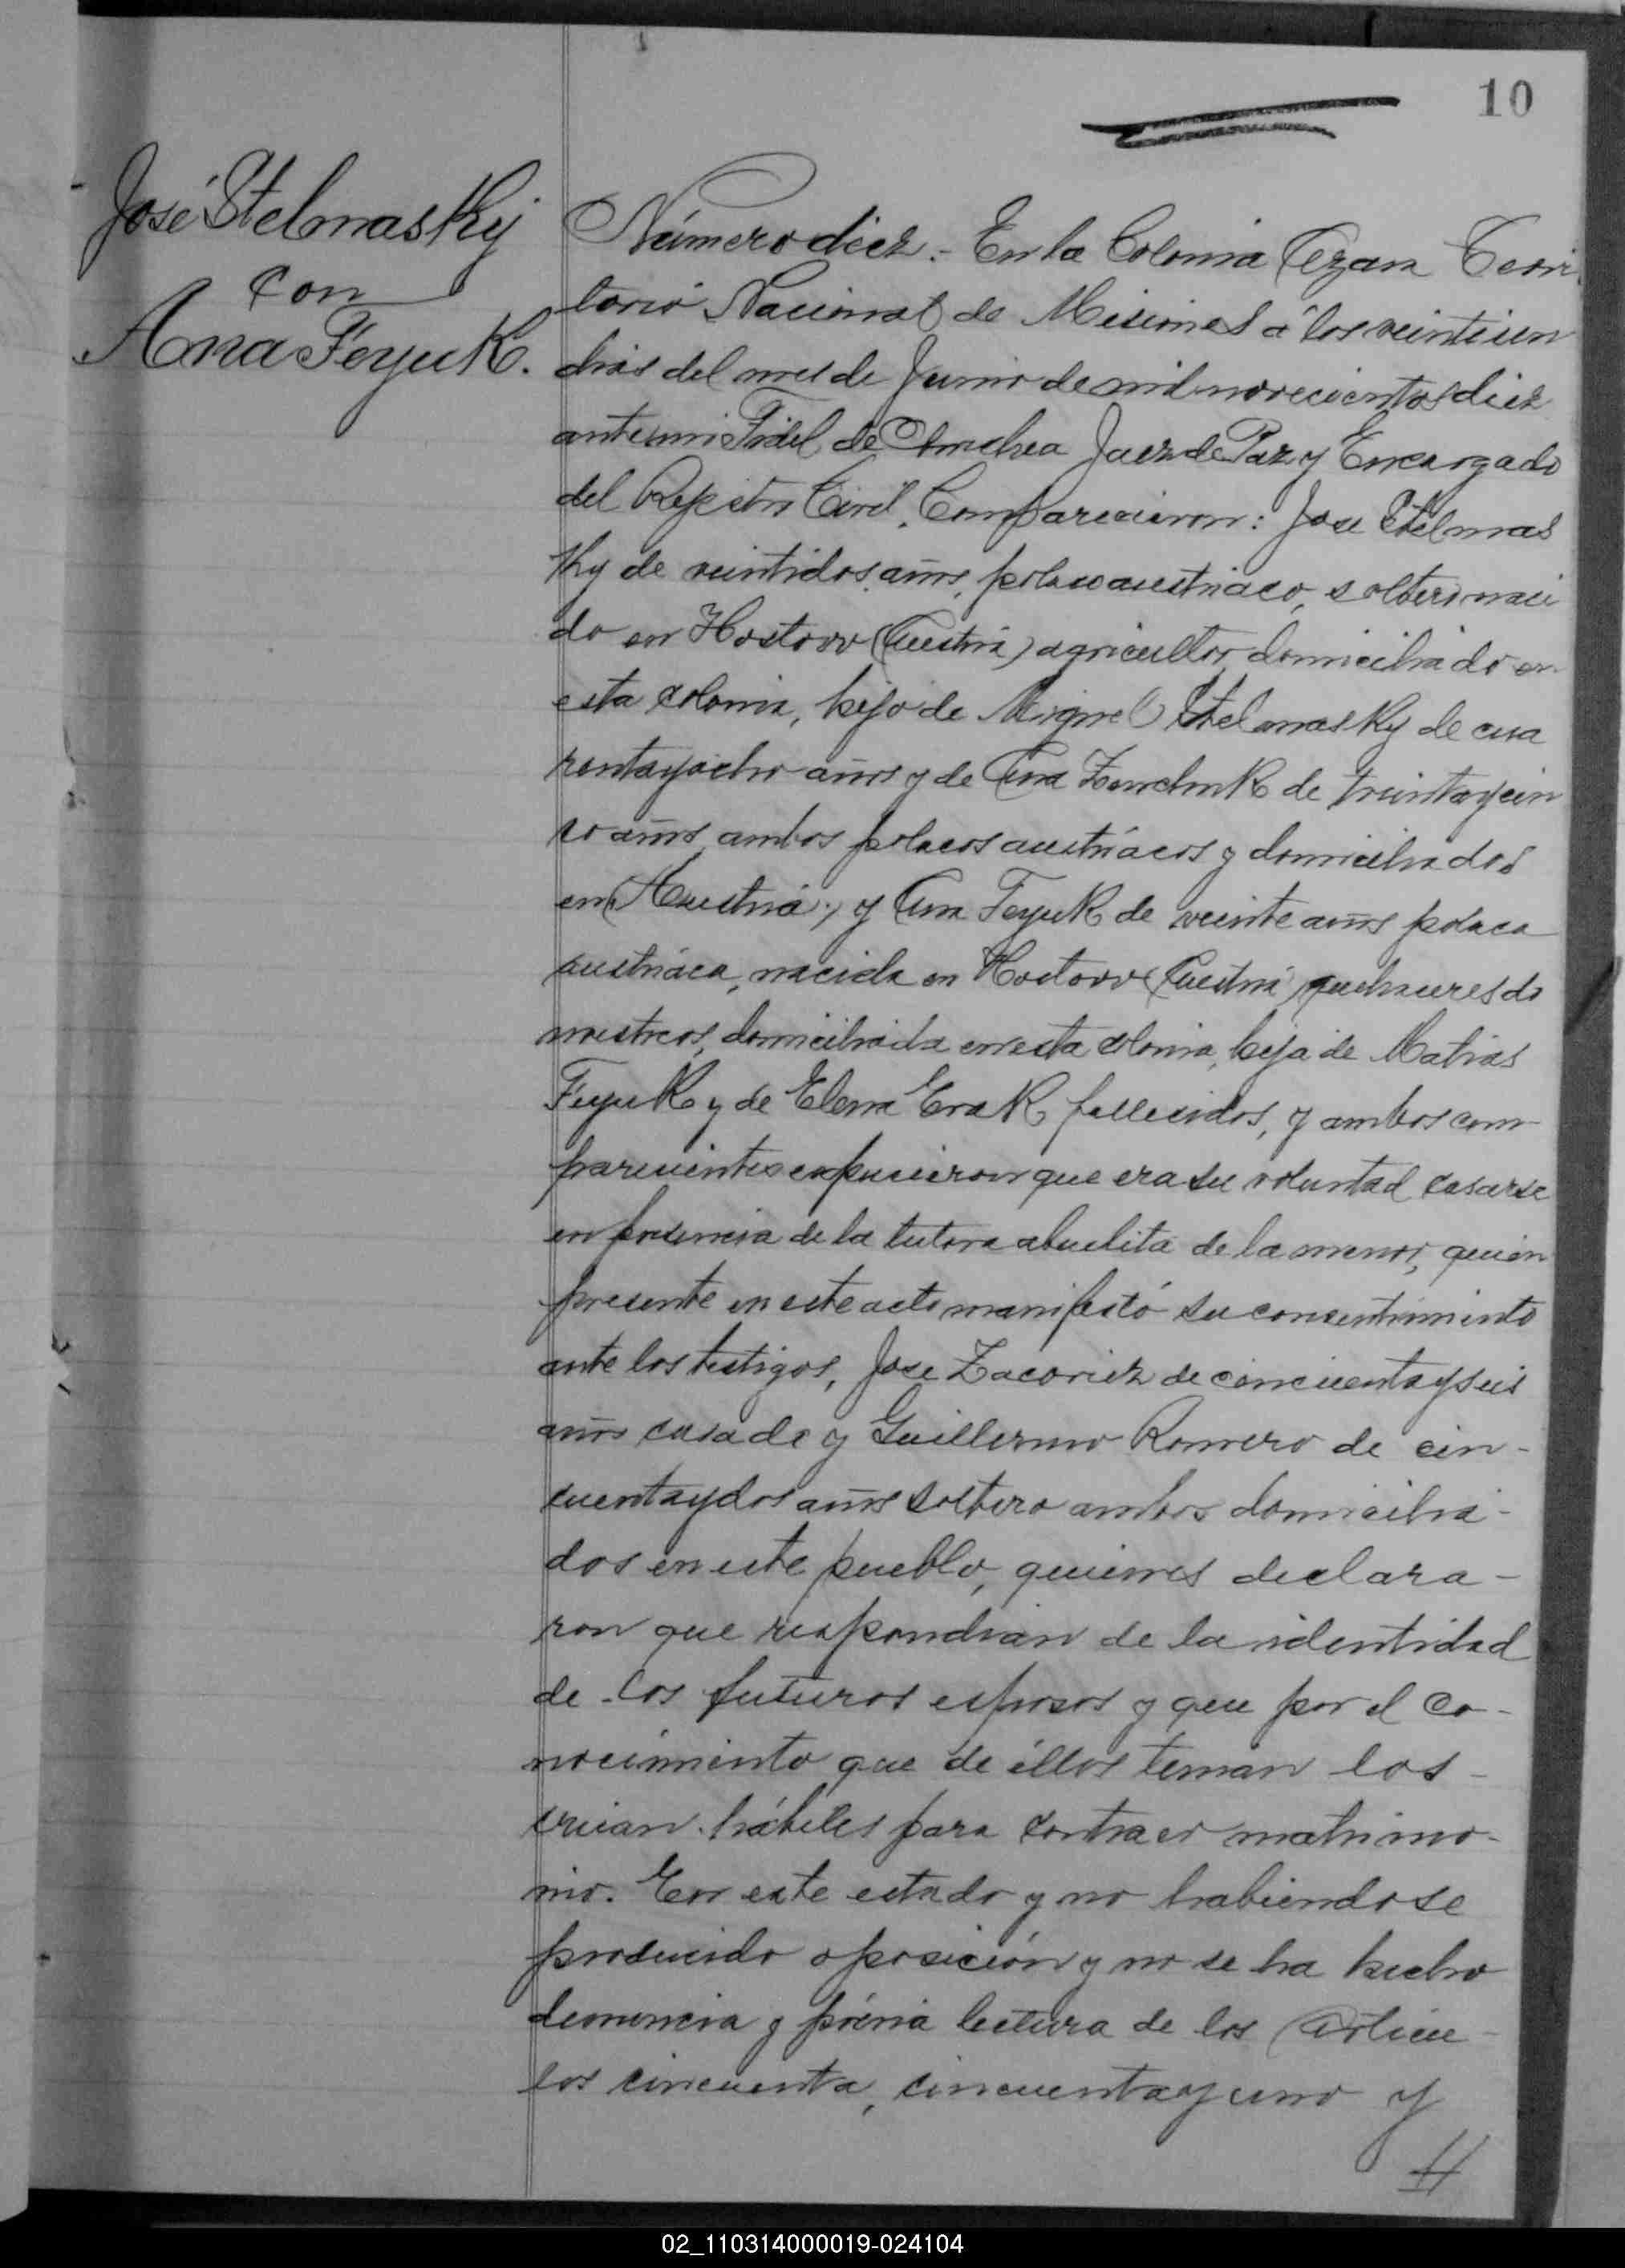 10
José Stelmasky
con
Ana Feyuk.
Número diez.- En la Colonia Azara Terri
torio Nacional de Misiones á los veintiun
dias del mes de Junio de mil novecientos diez
ante mi Fidel de Amchea Juez de Paz y Encargado
del Registro Civil, Comparecieron: Jose Stelmas
ky de veintidos años, polaco austriaco, soltero naci
do en Hostow (Austria) agricultor domiciliado en
esta colonia, hijo de Miguel Stelmasky de cua
renta y ocho años y de Ana de treinta y cin
co años ambos polacos austríacos y domiciliados
en Austria; y Ana Feyuk de veinte años polaca
austriaca, nacida en Hostow (Austria) quehaceres do
mesticos, domiciliada en esta colonia, hija de Matias
Feyuk y de Elena Erak fallecidos, y ambos com-
parecientes expusieron que era su voluntad casarse
en presencia de la tutora abuelita de la menor, quien
presente en este acto manifestó su consentimiento
ante los testigos, Jose de cincuenta y seis
años casado y Guillermo Romero de cin-
cuenta y dos años soltero ambos domicilia-
dos en este pueblo, quienes declara-
ron que respondian de la identidad
de los futuros esposos y que por el co-
nocimiento que de éllos tenian los
creian hábiles para contraer matrimo-
nio. En este estado y no habiendose
producido oposición y no se ha hecho
denuncia y prévia lectura de los Articu-
los cincuenta, cincuenta y uno y
//
02_110314000019-024104